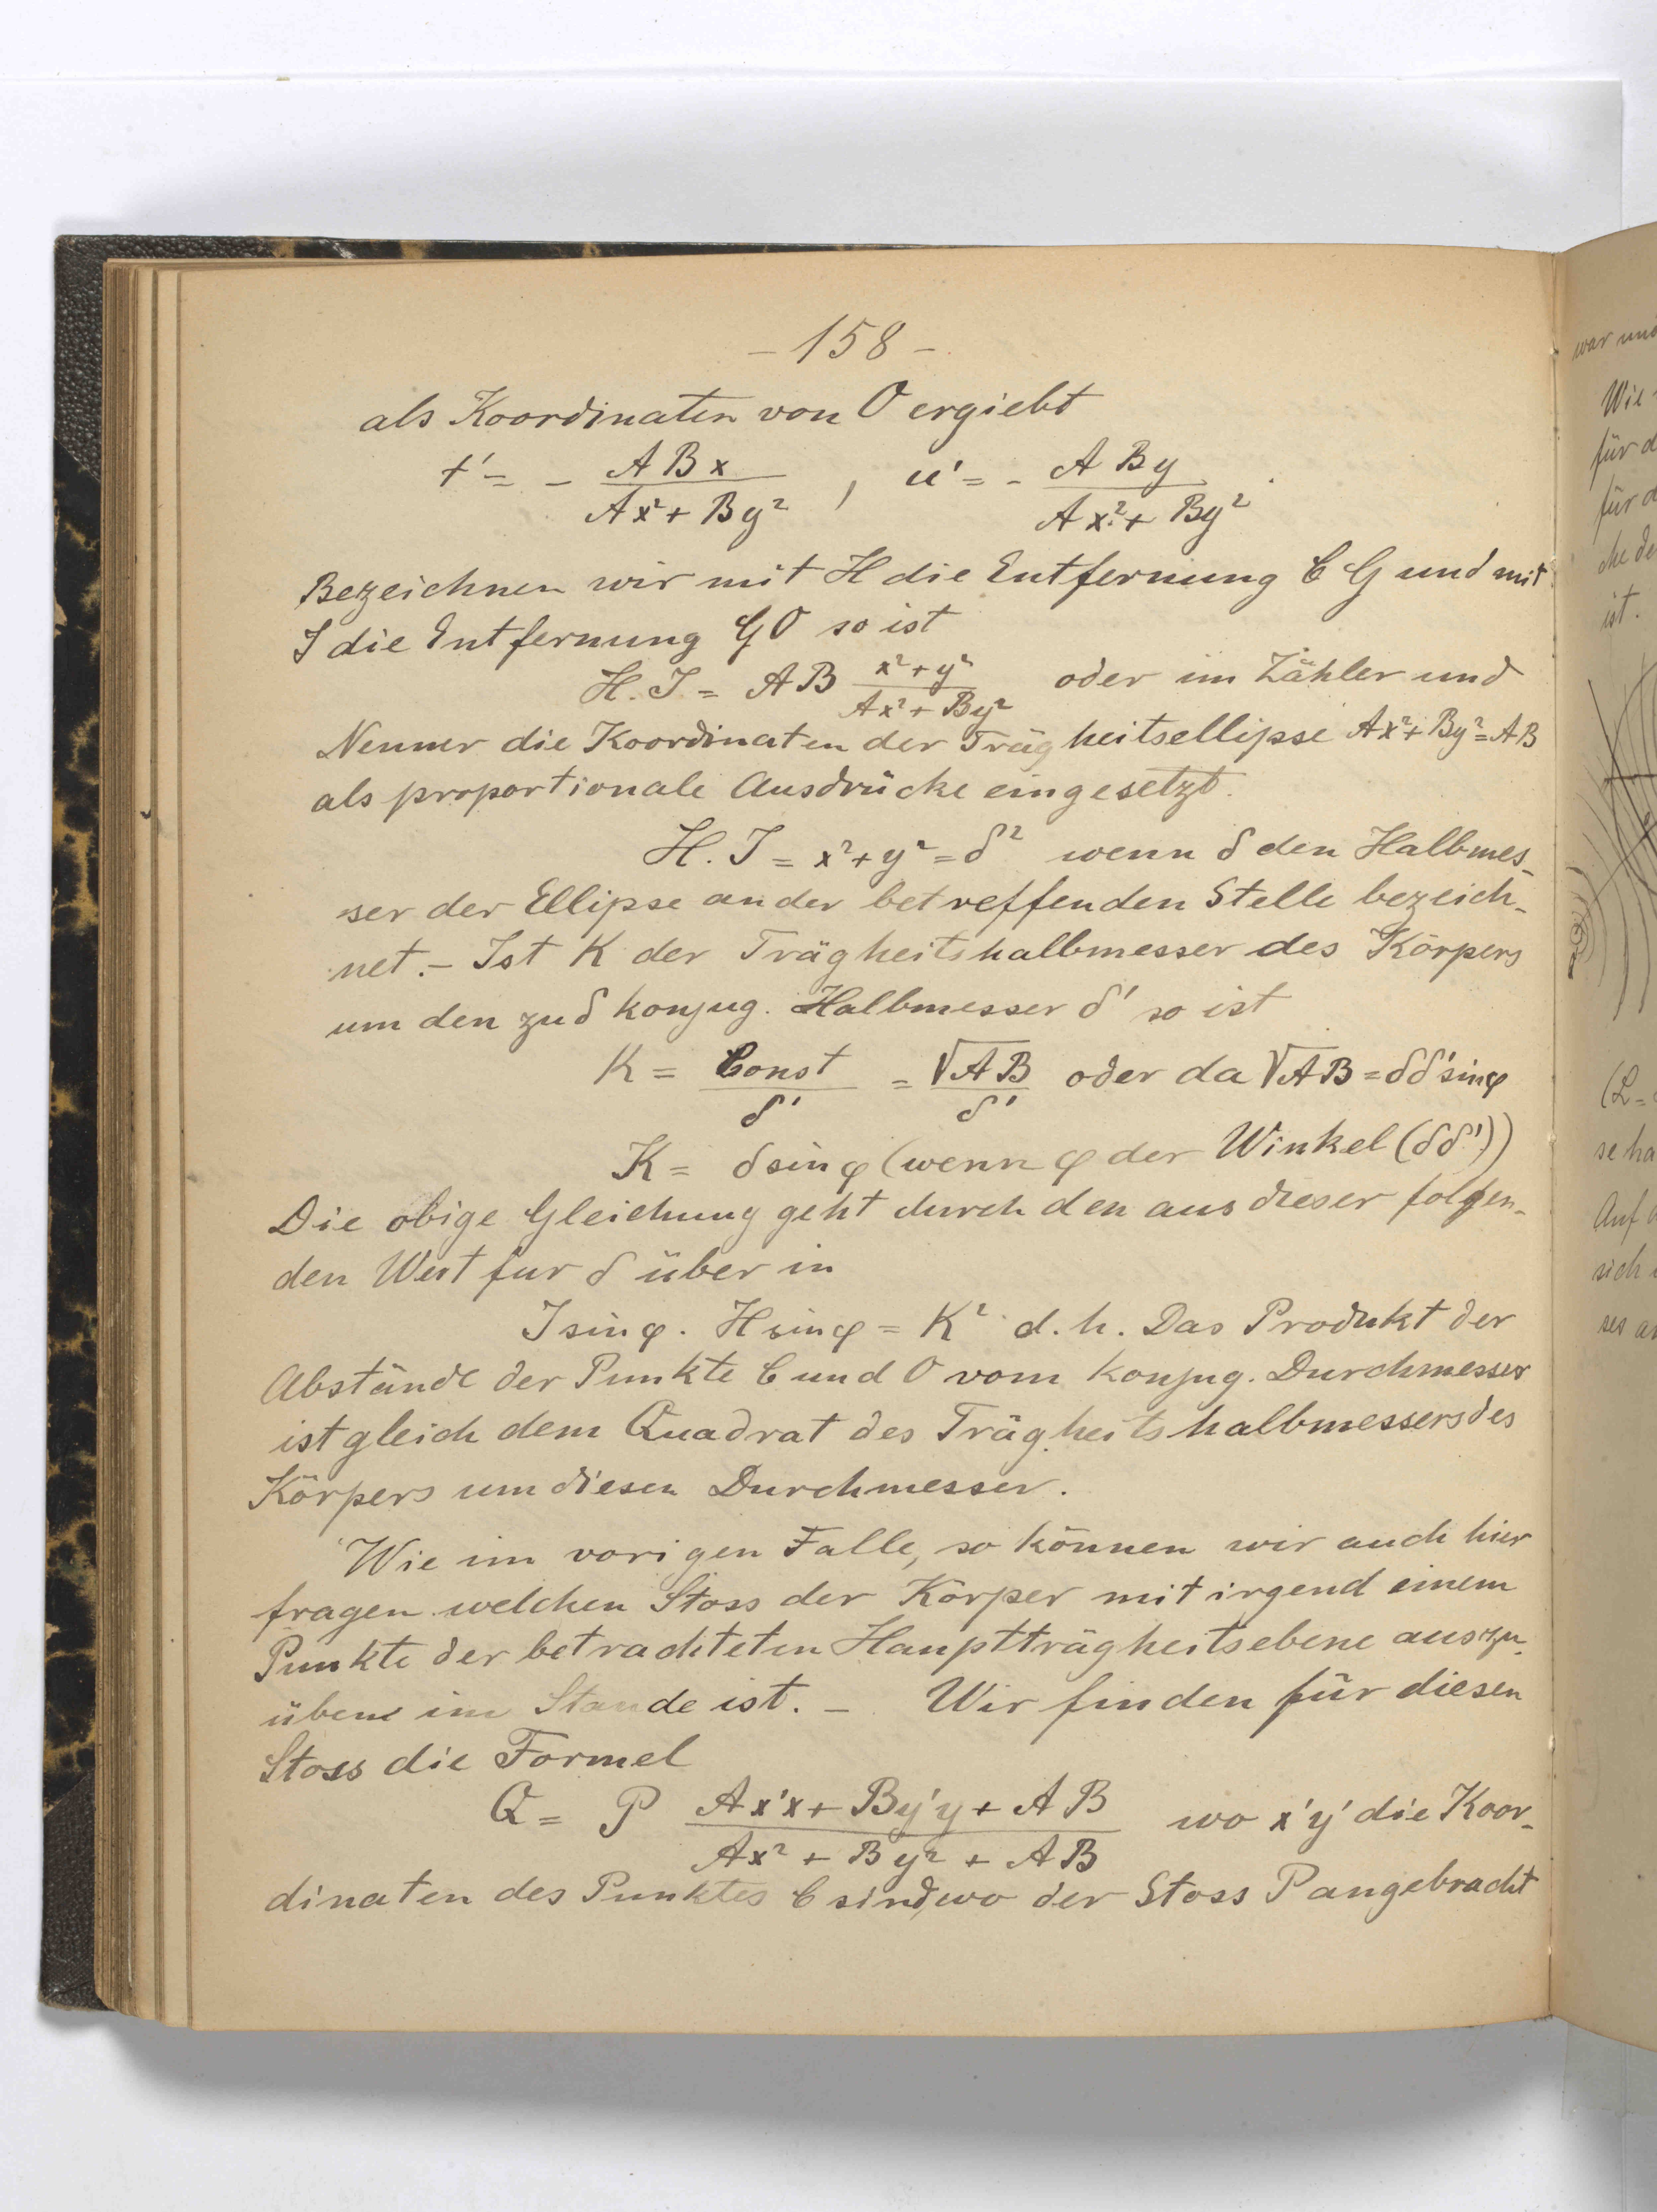 - 158 -
als Koordinaten von O ergiebt
t' = - ABx / (Ax² + By²) , u' = - ABy / (Ax² + By²) .
Bezeichnen wir mit H die Entfernung C G und mit
J die Entfernung GO so ist
H. J = AB (x² + y²) / (Ax² + By²) oder im Zähler und
Nenner die Koordinaten der Trägheitsellipse Ax² + By² = AB
als proportionale Ausdrücke eingesetzt.
H. J = x² + y² = δ² wenn δ den Halbmes-
ser der Ellipse an der betreffenden Stelle bezeich-
net. - Ist K der Trägheitshalbmesser des Körpers
um den zu δ konjug. Halbmesser δ' so ist
K = Const / δ' = √AB / δ' oder da √AB = δδ' sin φ
K = δ sin φ (wenn φ der Winkel (δδ'))
Die obige Gleichung geht durch den aus dieser folgen-
den Wert fur δ über in
J sin φ . H sin φ = K² d. h. Das Produkt der
Abstände der Punkte C und O vom konjug. Durchmesser
ist gleich dem Quadrat des Trägheitshalbmessers des
Körpers um diesen Durchmesser.
Wie im vorigen Falle, so können wir auch hier
fragen welchen Stoss der Körper mit irgend einem
Punkte der betrachteten Hauptträgheitsebene auszu-
üben im Stande ist. - Wir finden für diesen
Stoss die Formel
Q = P (Ax'x + By'y + AB) / (Ax² + By² + AB) wo x'y' die Koor-
dinaten des Punktes C sind, wo der Stoss P angebracht
war und
Wie
für d
für d
che de
ist.
(L =
se ha
Auf
sich
ses an